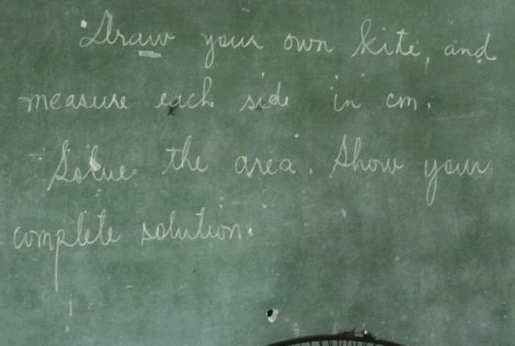 Draw your own kite, and
measure each side in cm.
Solve the area. Show your
complete solution.